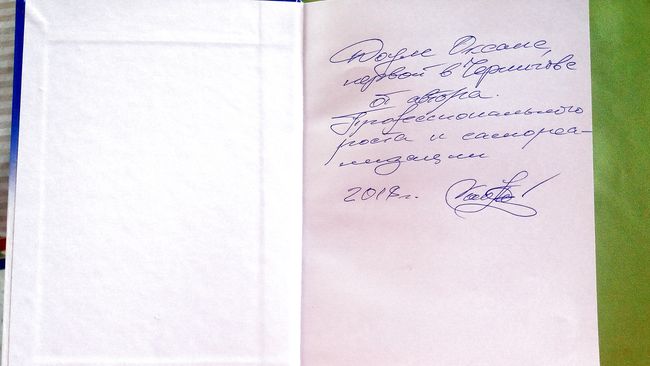 Доуле Оксане,
первой в Чернигове
от автора.
Профессионального
роста и самореа-
лизации
2017г.